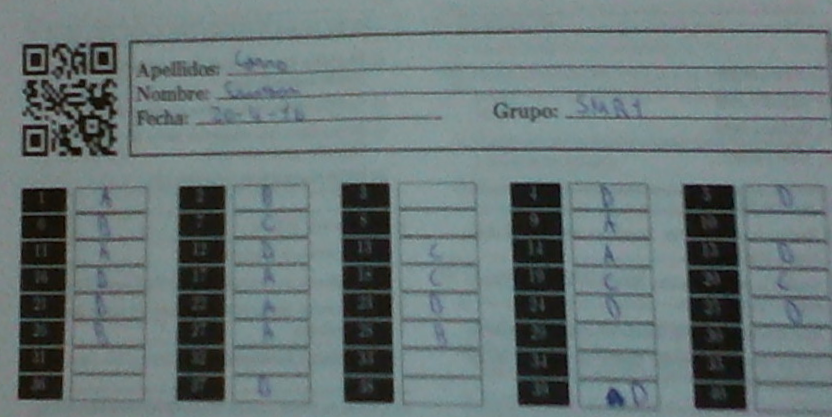 Apellidos:
Nombre:
Fecha: 20-4-16 Grupo: SMR1
1 A 2 B 3 4 D 5 D
6 B 7 C 8 9 A 10
11 A 12 D 13 C 14 A 15 B
16 D 17 A 18 C 19 C 20 C
21 B 22 A 23 B 24 D 25 D
26 B 27 A 28 B 29 30
31 32 33 34 35
36 37 B 38 39 D 40